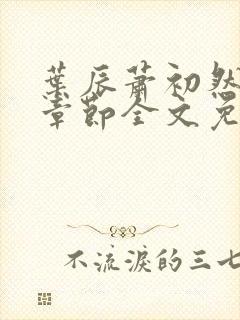 葉辰蕭初然
章節全文免
不流淚的三七